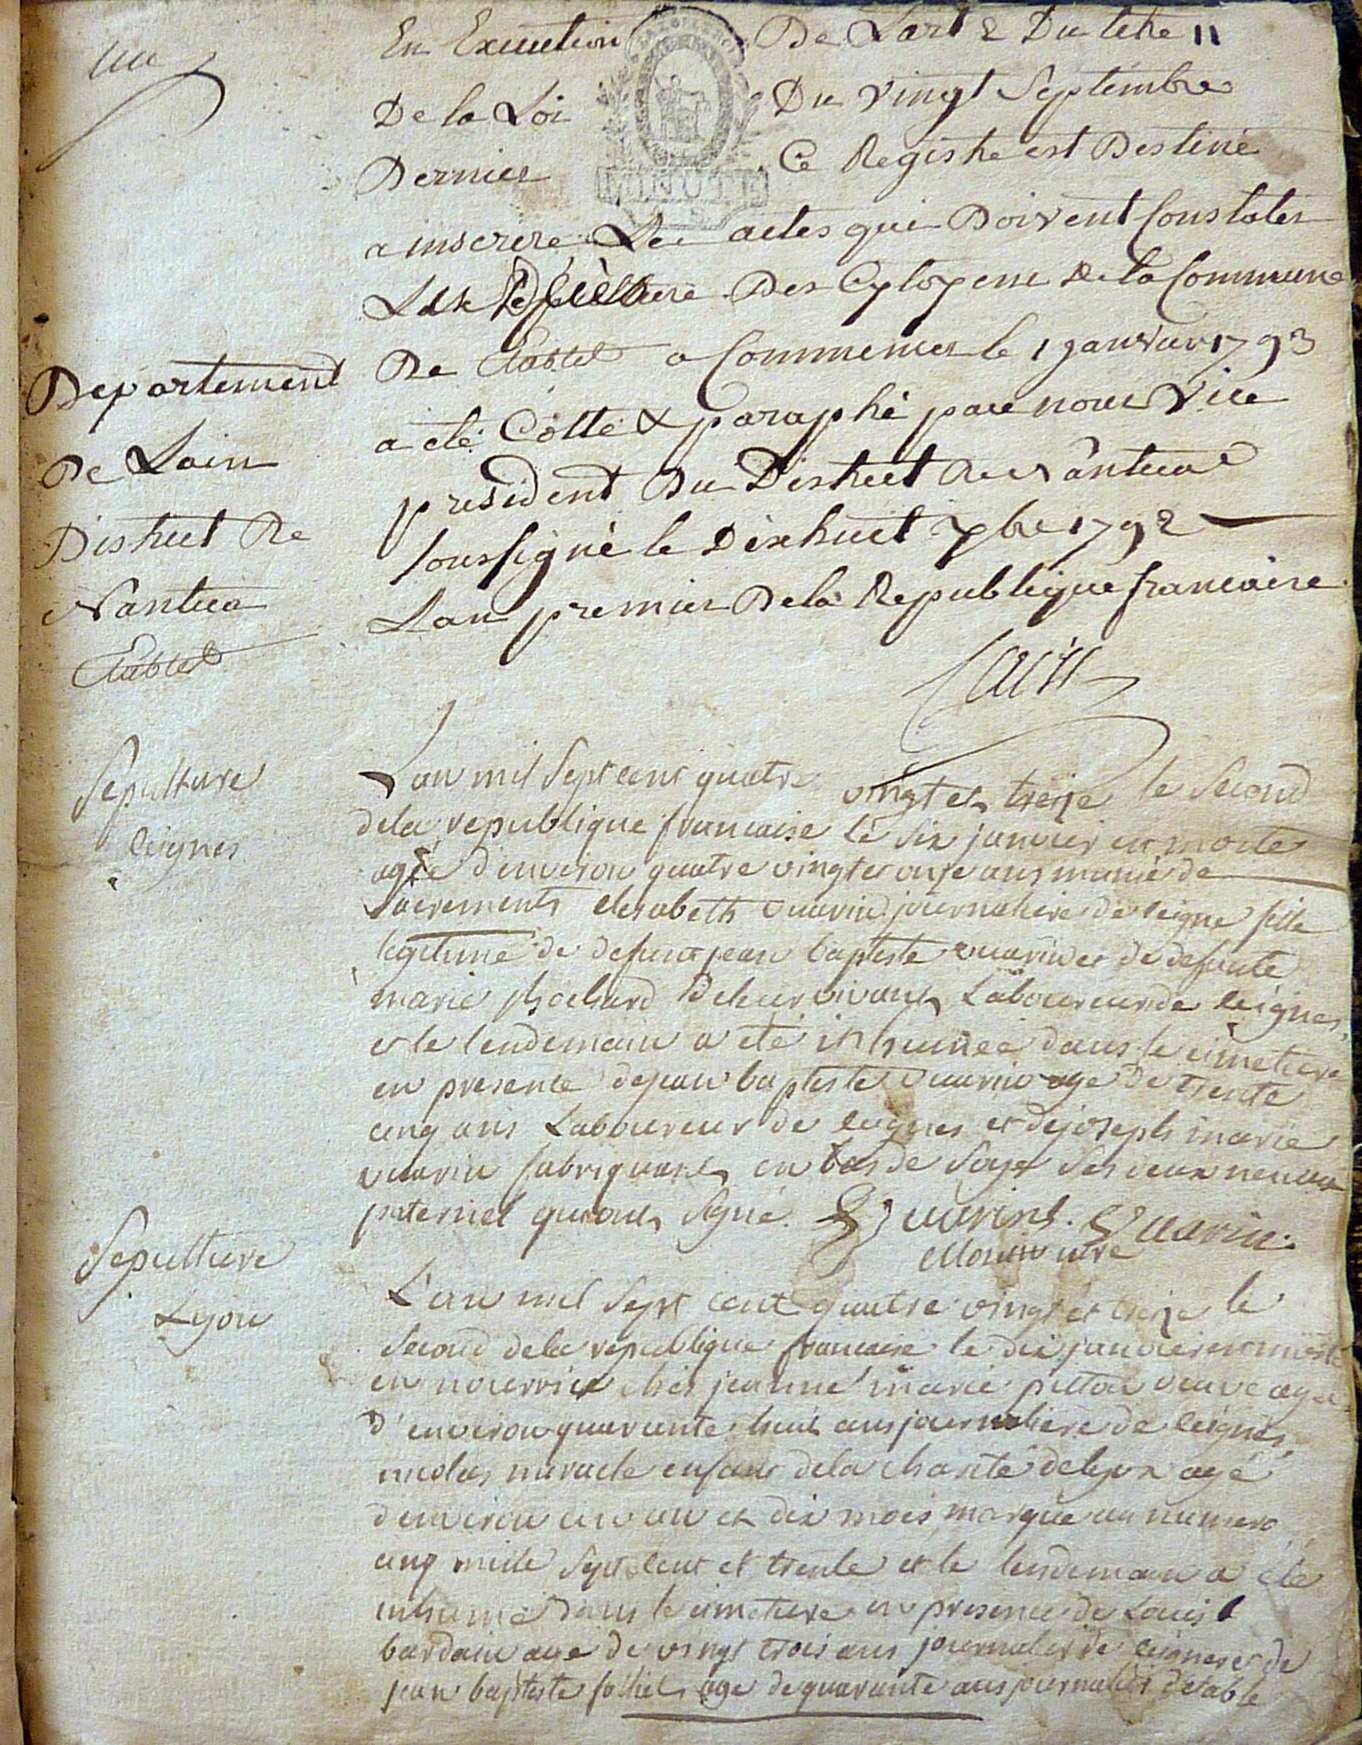 une
En Execution De Lart 2 Du titre 11
De la Loi Du vingt Septembre
Dernier Ce Registre est Destiné
MINUTE
a inscrire Les actes qui Doivent Constater
Les Des Cytoyens De la Commune
De Etables a Commencer le 1 janvier 1793
a eté Cotté & paraphé par nous Vice
president Du District De Nantua
Soussigné le Dixhuit Xbre 1792
Lan premier De la Republique francaise
Departement
De Lain
District De
Nantua
Etables
Sepulture
leignes
L'an mil Sept cent quatre vingt et treize le Second
de la republique francaise le six janvier est morte
agée d'environ quatre vingt et onze ans munie de
Sacrements elisabeth Quarin journaliere de leigne fille
legitime de defunt jean baptiste Quarin et de defunte
marie de leur vivant Laboureur de leignes,
et le lendemain a été inhumée dans le cimetiere
en presence de jean baptiste Quarin agé de trente
cinq ans Laboureur de leignes et de joseph marie
Quarin fabriquant en bas de Soye Ses deux neveux
paternel qui ont Signé. Quarin. Quarin.
Sepulture
Lyon
L'an mil Sept cent quatre vingt et treize le
Second de la republique francaise le dix janvier est mort
en nourrice chés jeanne marie pitton veuve agée
d'environ quarante huit ans journaliere de leignes,
nicolas miracle enfant de la charité de lyon agé
d'environ un an et dix mois marqué au numero
cinq mille Sept cent et trente et le lendemain a été
inhumé dans le cimetiere en presence de Louis
bardain agé de vingt trois ans journalier de leignes et de
jean baptiste agé de quarante ans journalier d'étable